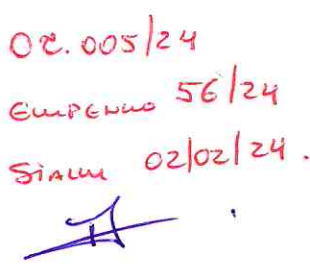 OC. 005/24
EMPENHO 56/24
SIAFEM 02/02/24.